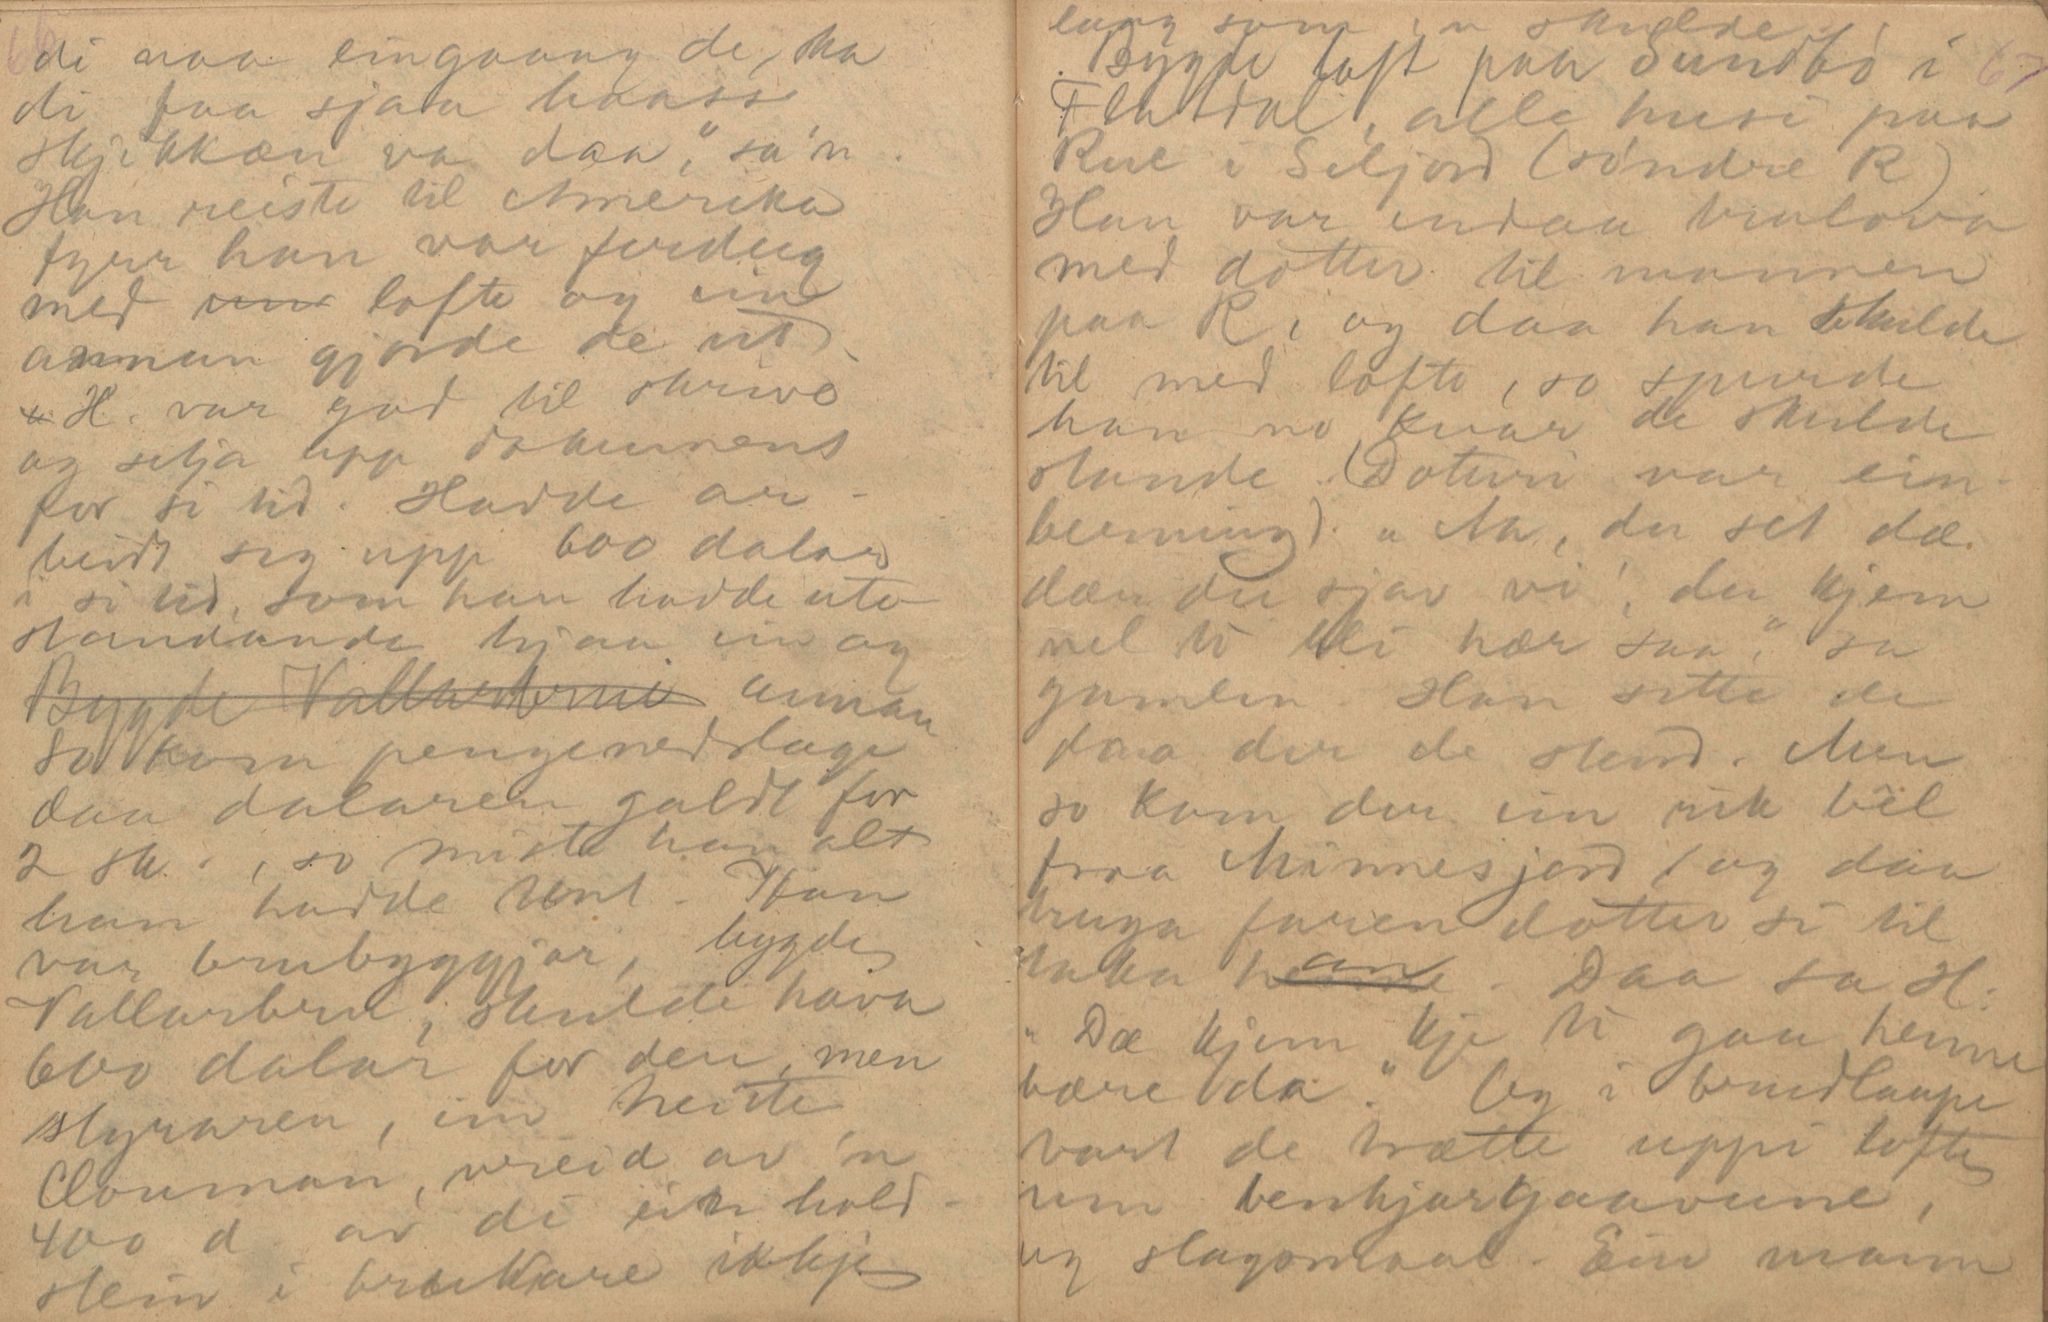 66
di naa eingaang de, ka
di faa sjaa haass
skjikkæn va daa," sa'n.
Han reiste til Amerika
fyrr han var ferdug
med lofte og ein
annan gjorde de ut.
H. var god til skrive
og setja upp dokument
for si tid. Hadde ar-
beidt seg upp 600 dalar
i si tid, som han hadde uta-
standande hjaa ein og
Bygde Vallarbrui annan
So kom pengenedslage
daa dalaren galdt for
2 sk., so miste han alt
han hadde tent. Han
var brubyggjar, bygde
Vallarbrui, skulde hava
600 dalar for den, men
styraren, ein heitte
Clouman, vreid av 'n
400 d. av di ein hald-
stein i brukare ikkje
67
lang som 'n skulde.
Bygde loft paa Sundbø i
Flatdal, alle husi paa
Rue i Seljord (søndre R)
Han var endaa trulova
med dotter til mannen
paa R, og daa han skulde
til med lofte, so spurde
han no kvar de skulde
stande. (Dotteri var ein-
berning). "Aa, du set dæ
dær du sjav vi', du kjem
vel ti bli hær saa," sa
gamlen. Han sette de
daa der de stend. Men
so kom der ein rik bel
fraa Minnesjord, og daa
truga faren dotter si til
taka han. Daa sa H:
"Dæ kjem kje ti gaa henne
bære da." Og i brudlaupe
vart de trætte uppi lofte
um benkjargaavune,
og slagsmaal. Ein mann